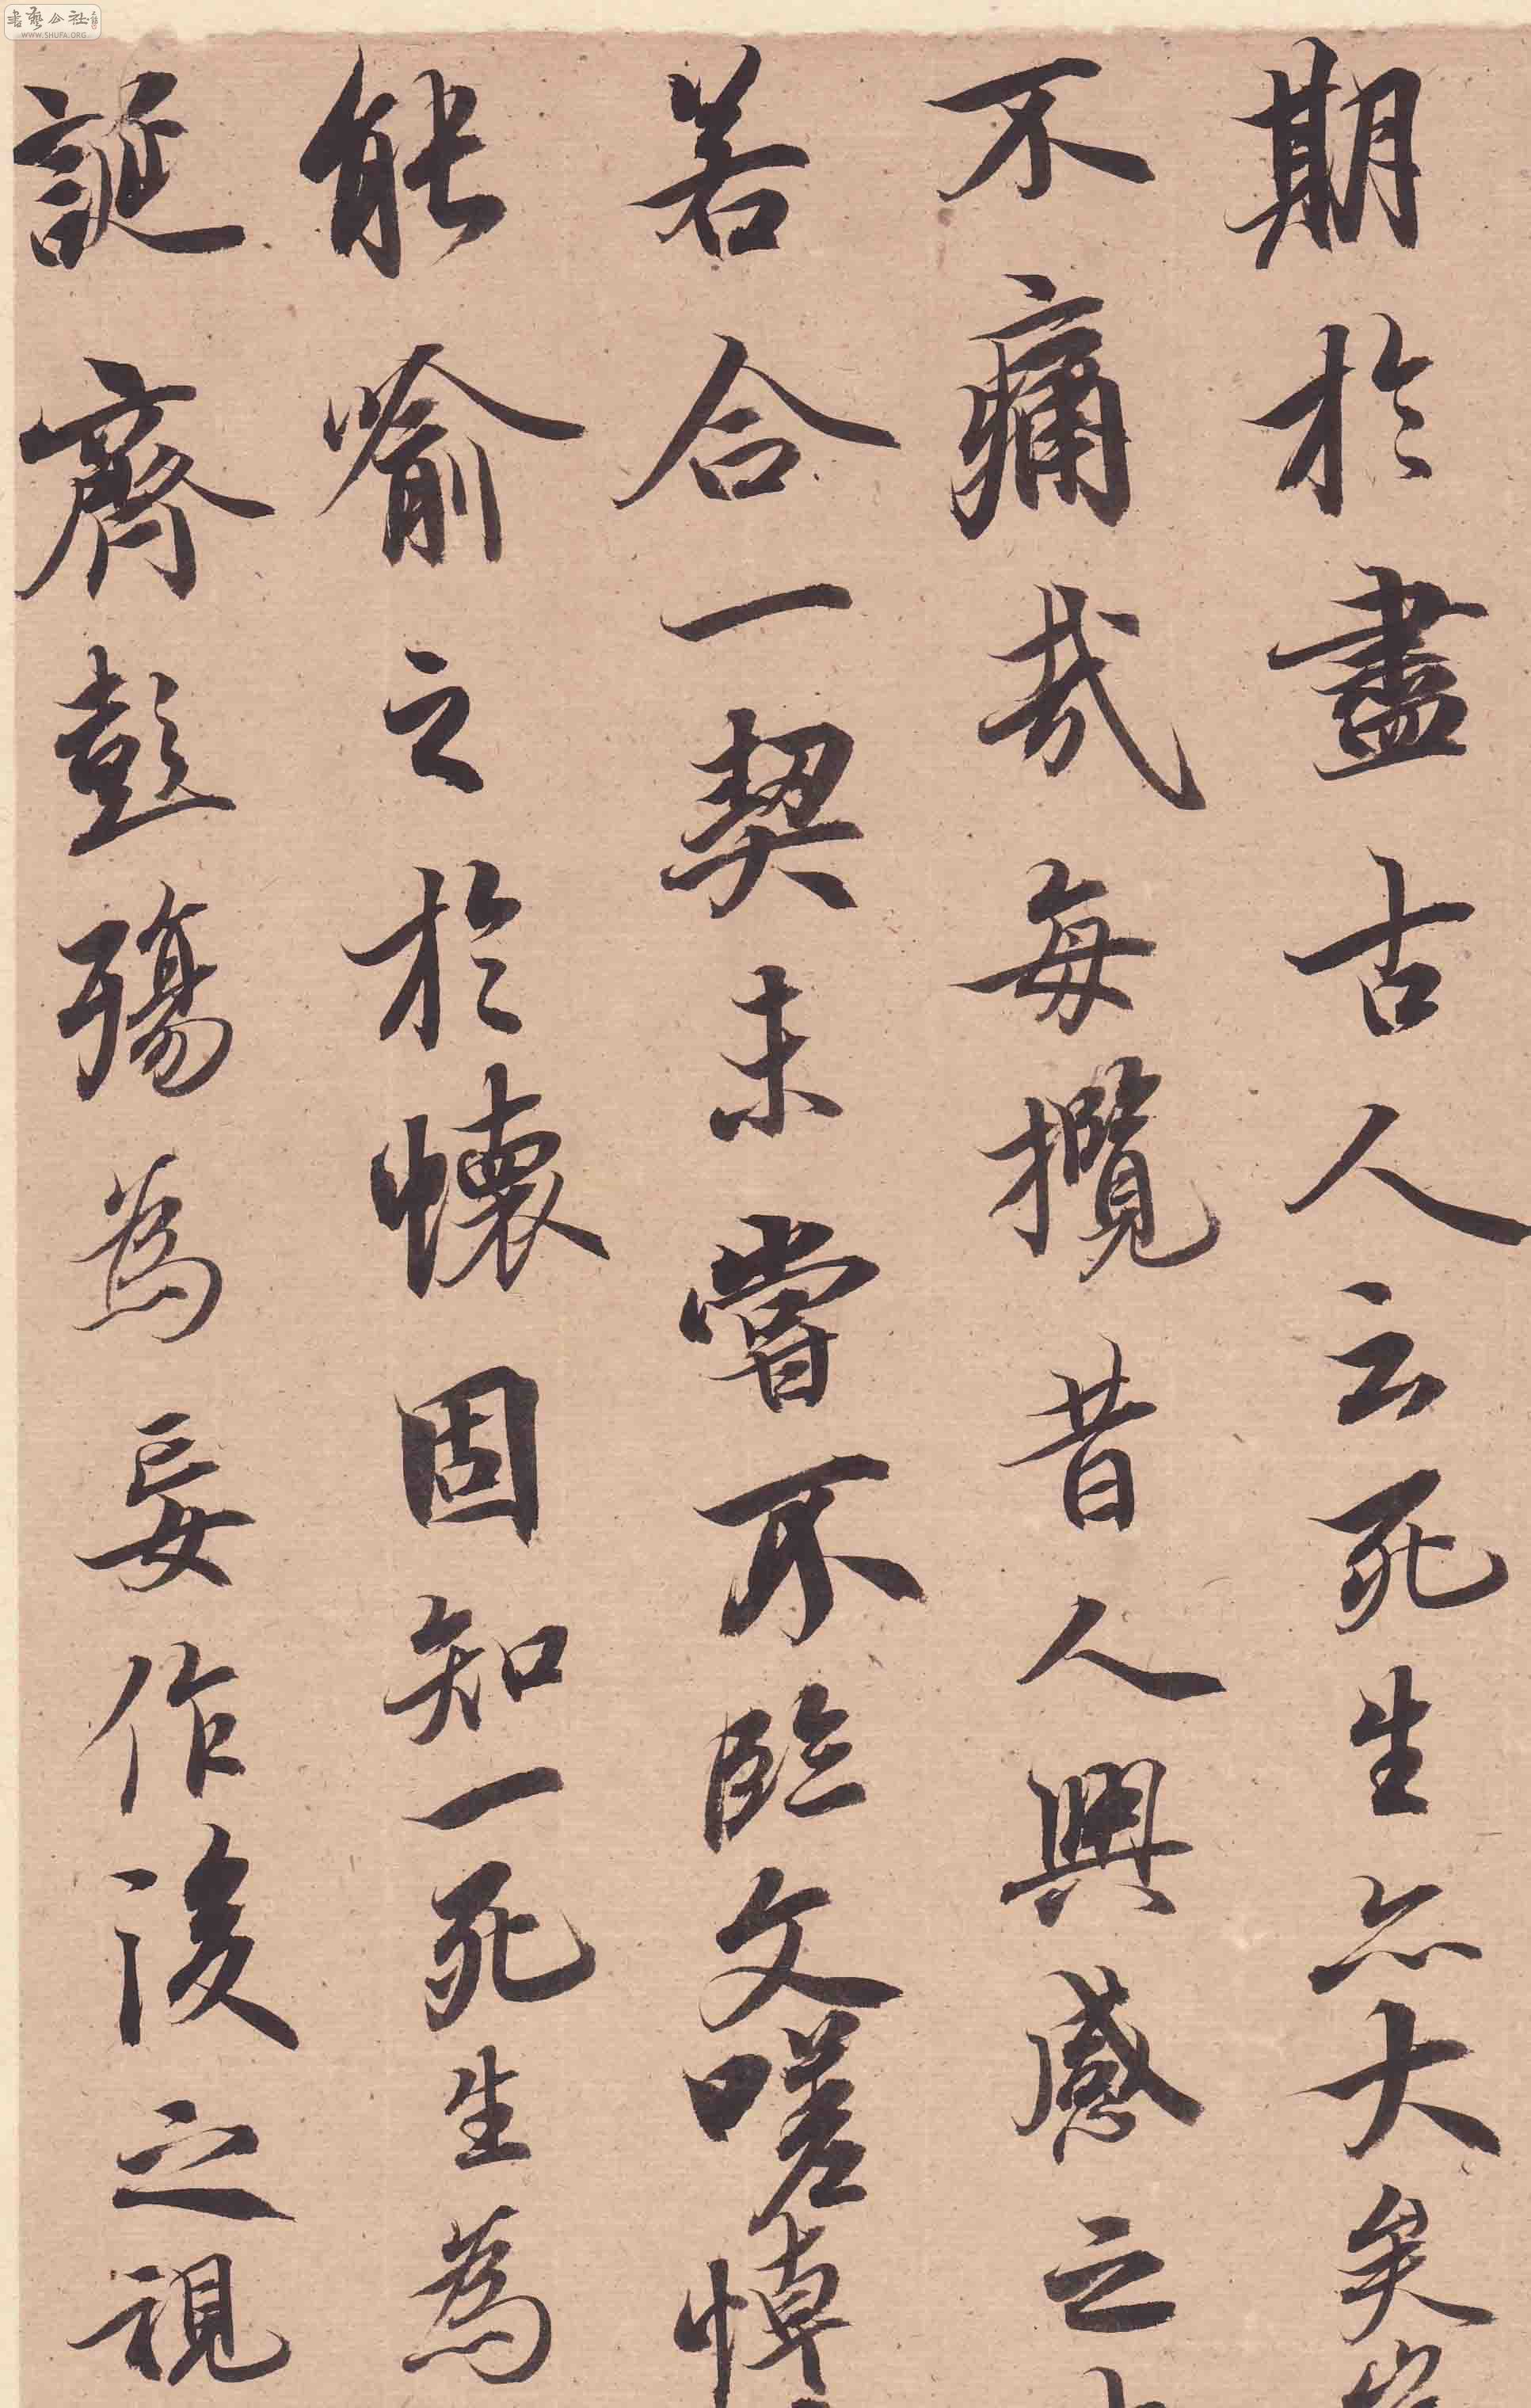 期於盡古人云死生亦大矣豈
不痛哉每攬昔人興感之
若合一契未嘗不臨文嗟悼
能喻之於懷固知一死生為
誕齊彭殤為妄作後之視
書藝公社
WWW.SHUFA.ORG